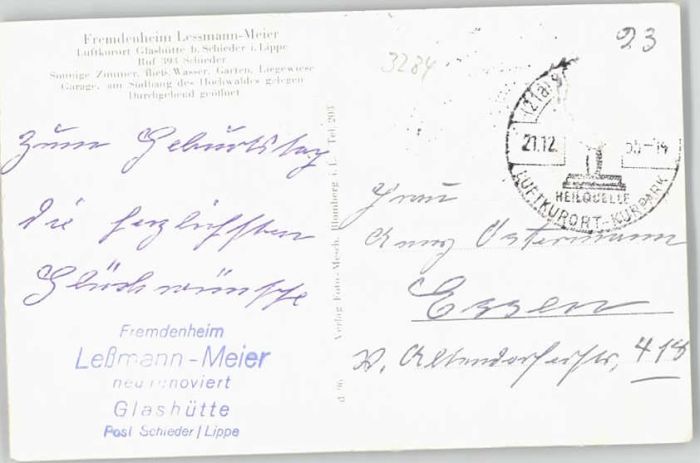 Fremdenheim Lessmann-Meier
Luftkurort Glashütte b. Schieder i. Lippe
Ruf 393 Schieder
Sonnige Zimmer, fließ. Wasser, Garten, Liegewiese
Garage, am Südhang des Hochwaldes gelegen
Durchgehend geöffnet
3284
23
(21a)
21.12. 55-14
HEILQUELLE
LUFTKURORT-KURPARK
Zum Geburtstag
die herzlichsten
Glückwünsche
Fremdenheim
Leßmann-Meier
neu renoviert
Glashütte
Post Schieder/Lippe
Verlag Foto-Mesch, Blomberg i. L. Tel. 203
Frau
Ostermann
Essen
W. Altendorferstr. 418